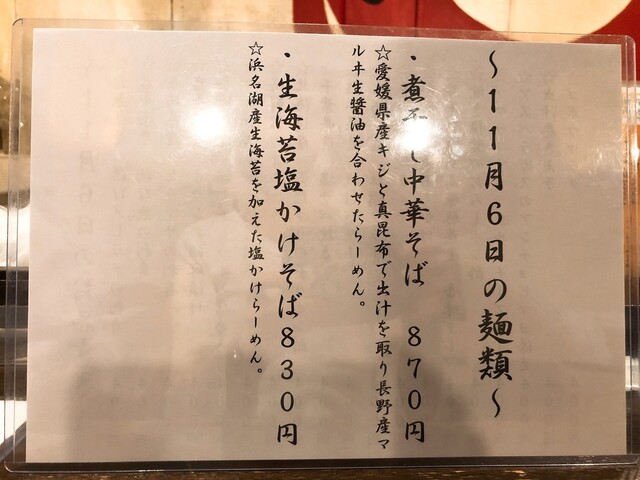 〜11月6日の麺類〜
・煮干し中華そば 870円
☆愛媛県産キジと真昆布で出汁を取り長野産マ
ルヰ生醤油を合わせたらーめん。
・生海苔塩かけそば830円
☆浜名湖産生海苔を加えた塩かけらーめん。